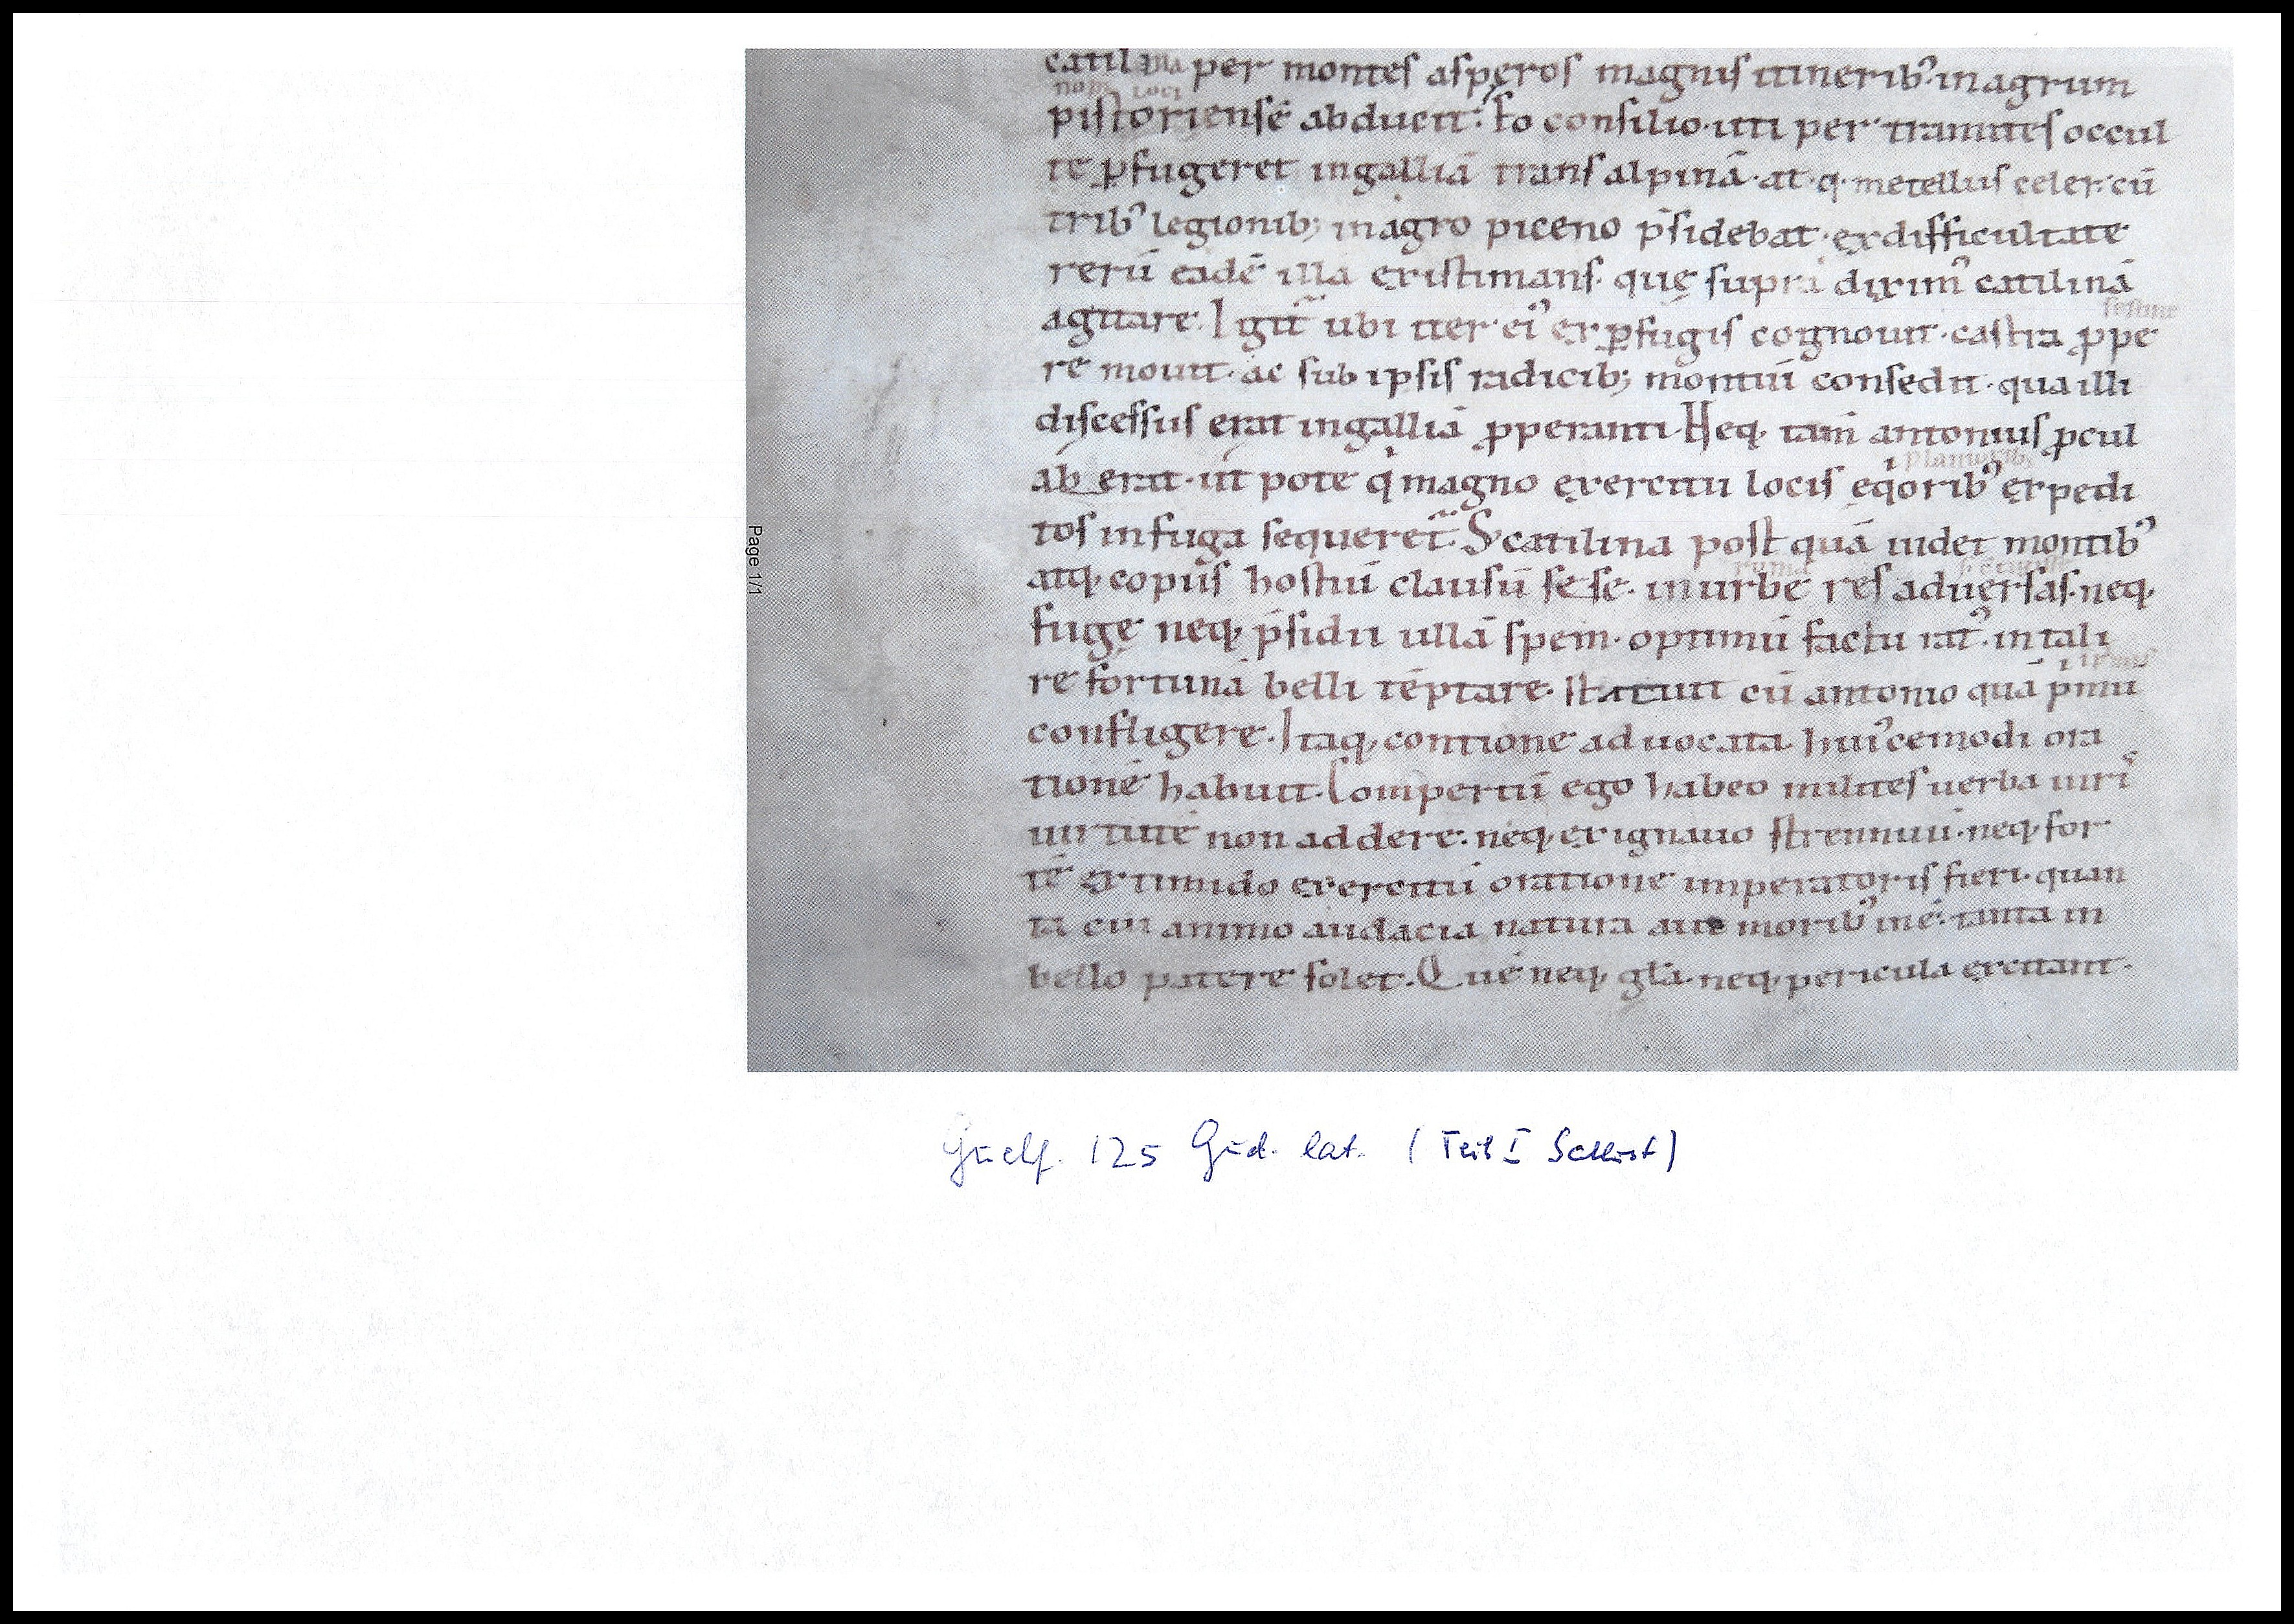 catilina per montes asperos magnis itinerib᾽ in agrum
nom loci
pistoriensē abducit. Eo consilio· uti per tramites occul
te ꝑfugeret in galliā trans alpinā· at· q· metellus celer· cū
trib᾽ legionib; in agro piceno p̄sidebat· ex difficultate
rerū eadē illa existimans· quę supra dixim᾽ catilinā
agitare. Igit̄ ubi iter ei᾽ ex ꝑfugis cognouit· castra ꝓpe
festine
re mouit· ac sub ipsis radicib; montiū consedit· qua illi
discessus erat in galliā ꝓperanti· Neq· tam̄ antonius ꝓcul
ab erat· ut pote q' magno exercitu locis eqͥorib᾽ expedi
planiorib;
tos in fuga sequeret̄. S; catilina post quā uidet montib᾽
atq· copiis hostiū clausū se se· in urbe res aduersas· neq·
fugę neq· p̄sidii ullā spem· optimū factu rat᾽· in tali
re fortunā belli tēptare· statuit cū antonio quā pͥmū
confligere. Itaq· contione ad uocata huiʼcemodi ora
tionē habuit. Compertū ego habeo milites uerba uiris
uirtutē non addere· neq· ex ignauo strennuū· neq· for
tē ex timido exercitū oratione imperatoris fieri· quan
ta cui animo audacia natura aut morib᾽ inē· tanta in
bello patere solet. Quē neq· gl̄a· neq· pericula excitant·
Page 1/1
Guelf. 125 Gud. lat. (Teil I Sallust)